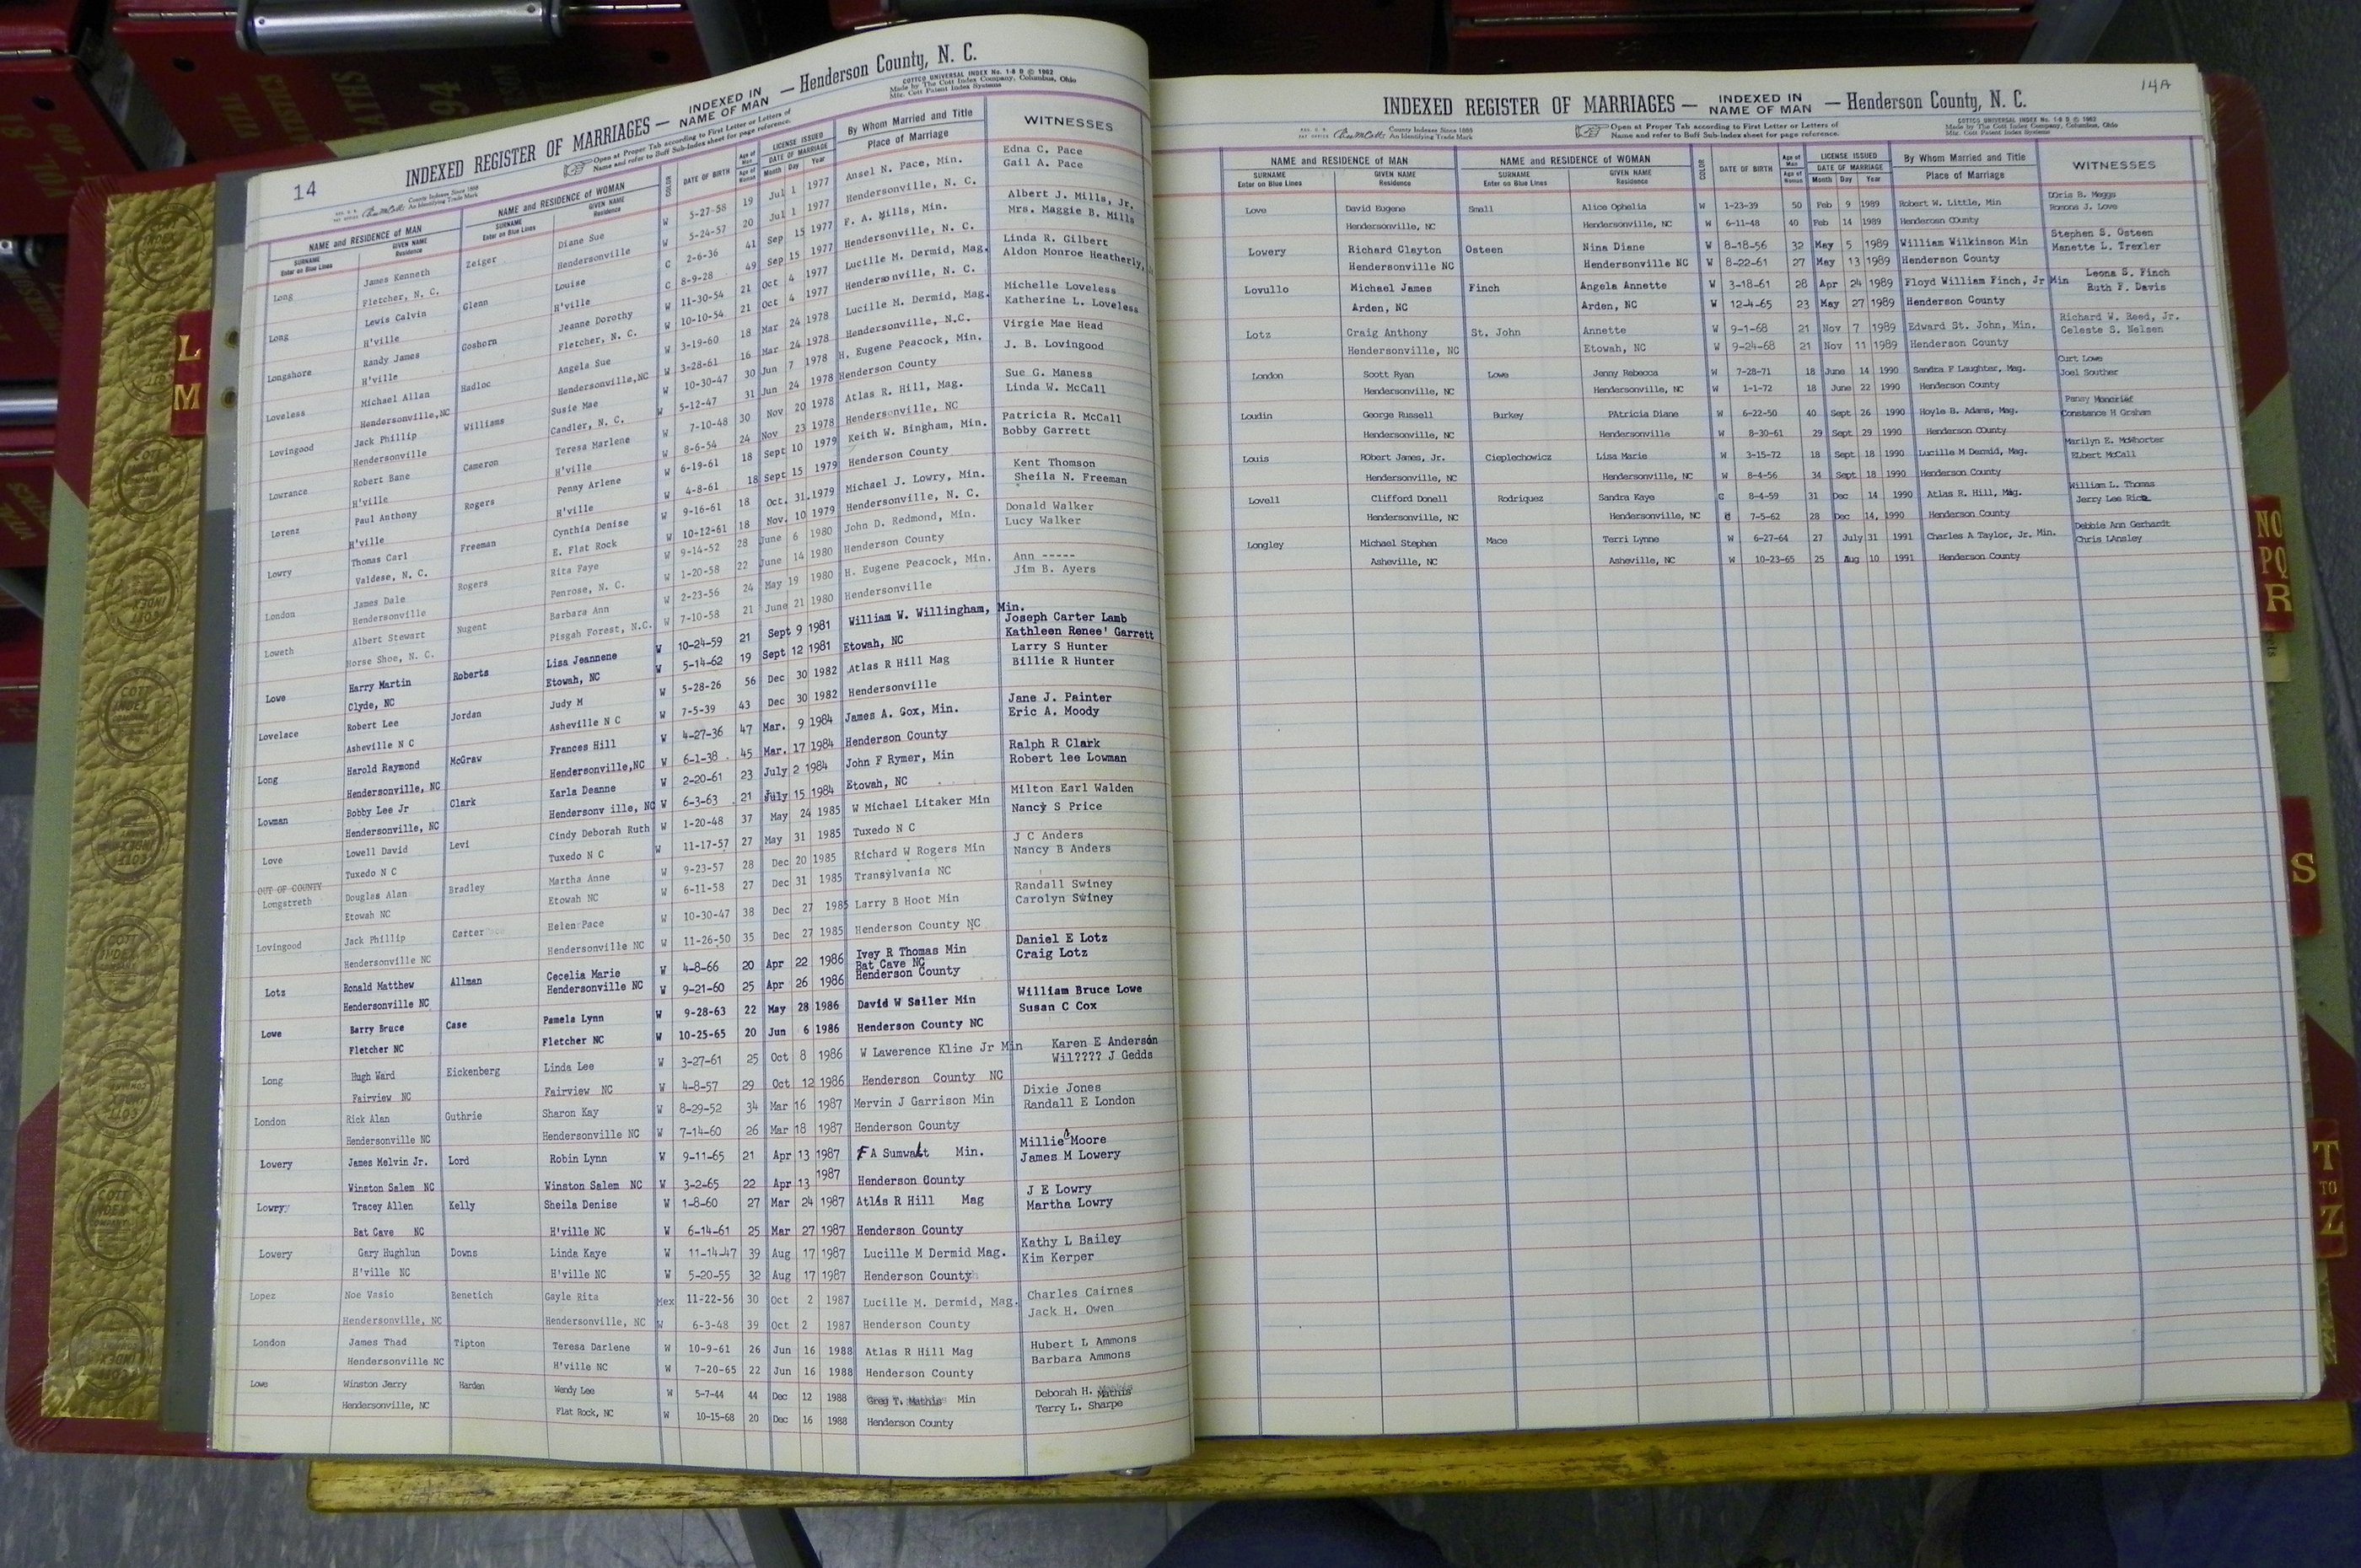 14
INDEXED REGISTER OF MARRIAGES — INDEXED IN NAME OF MAN — Henderson County, N. C.
COTTCO UNIVERSAL INDEX No. 1-8 D © 1962
Made by The Cott Index Company, Columbus, Ohio
Mfr. Cott Patent Index Systems
County Indexes Since 1888
An Identifying Trade Mark
Open at Proper Tab according to First Letter or Letters of
Name and refer to Buff Sub-Index sheet for page reference.
NAME and RESIDENCE OF MAN NAME and RESIDENCE OF WOMAN COLOR DATE OF BIRTH Age of Man Age of Woman LICENSE ISSUED DATE OF MARRIAGE By Whom Married and Title Place of Marriage WITNESSES
SURNAME Enter on Blue Lines GIVEN NAME Residence SURNAME Enter on Blue Lines GIVEN NAME Residence Month Day Year
Long James Kenneth Zeiger Diane Sue W 5-27-58 19 Jul 1 1977 Ansel N. Pace, Min. Edna C. Pace
Fletcher, N. C. Hendersonville W 5-24-57 20 Jul 1 1977 Hendersonville, N. C. Gail A. Pace
Long Lewis Calvin Glenn Louise C 2-6-36 41 Sep 15 1977 F. A. Mills, Min. Albert J. Mills, Jr.
H'ville H'ville C 8-9-28 49 Sep 15 1977 Hendersonville, N. C. Mrs. Maggie B. Mills
Longshore Randy James Goshorn Jeanne Dorothy W 11-30-54 21 Oct 4 1977 Lucille M. Dermid, Mag. Linda R. Gilbert
H'ville Fletcher, N. C. W 10-10-54 21 Oct 4 1977 Hendersonville, N. C. Aldon Monroe Heatherly,
Loveless Michael Allan Hadloc Angela Sue W 3-19-60 18 Mar 24 1978 Lucille M. Dermid, Mag. Michelle Loveless
Hendersonville,NC Hendersonville,NC W 3-28-61 16 Mar 24 1978 Hendersonville, N.C. Katherine L. Loveless
Lovingood Jack Phillip Williams Susie Mae W 10-30-47 30 Jun 7 1978 H. Eugene Peacock, Min. Virgie Mae Head
Hendersonville Candler, N. C. W 5-12-47 31 Jun 24 1978 Henderson County J. B. Lovingood
Lowrance Robert Bane Cameron Teresa Marlene W 7-10-48 30 Nov 20 1978 Atlas R. Hill, Mag. Sue G. Maness
H'ville H'ville W 8-6-54 24 Nov 23 1978 Hendersonville, NC Linda W. McCall
Lorenz Paul Anthony Rogers Penny Arlene W 6-19-61 18 Sept 10 1979 Keith W. Bingham, Min. Patricia R. McCall
H'ville H'ville W 4-8-61 18 Sept 15 1979 Henderson County Bobby Garrett
Lowry Thomas Carl Freeman Cynthia Denise W 9-16-61 18 Oct. 31. 1979 Michael J. Lowry, Min. Kent Thomson
Valdese, N. C. E. Flat Rock W 10-12-61 18 Nov. 10 1979 Hendersonville, N. C. Sheila N. Freeman
London James Dale Rogers Rita Faye W 9-14-52 28 June 6 1980 John D. Redmond, Min. Donald Walker
Hendersonville Penrose, N. C. W 1-20-58 22 June 14 1980 Henderson County Lucy Walker
Loweth Albert Stewart Nugent Barbara Ann W 2-23-56 24 May 19 1980 H. Eugene Peacock, Min. Ann -----
Horse Shoe, N. C. Pisgah Forest, N.C. W 7-10-58 21 June 21 1980 Hendersonville Jim B. Ayers
Lowe Harry Martin Roberts Lisa Jeannene W 10-24-59 21 Sept 9 1981 William W. Willingham, Min. Joseph Carter Lamb
Clyde, NC Etowah, NC W 5-14-62 19 Sept 12 1981 Etowah, NC Kathleen Renee' Garrett
Lovelace Robert Lee Jordan Judy M W 5-28-26 56 Dec 30 1982 Atlas R Hill Mag Larry S Hunter
Asheville N C Asheville N C W 7-5-39 43 Dec 30 1982 Hendersonville Billie R Hunter
Long Harold Raymond McGraw Frances Hill W 4-27-36 47 Mar. 9 1984 James A. Cox, Min. Jane J. Painter
Hendersonville, NC Hendersonville,NC W 6-1-38 45 Mar. 17 1984 Henderson County Eric A. Moody
Lowman Bobby Lee Jr Clark Karla Deanne W 2-20-61 23 July 2 1984 John F Rymer, Min Ralph R Clark
Hendersonville, NC Hendersonv ille, NC W 6-3-63 21 July 15 1984 Etowah, NC Robert lee Lowman
Love Lowell David Levi Cindy Deborah Ruth W 1-20-48 37 May 24 1985 W Michael Litaker Min Milton Earl Walden
Tuxedo N C Tuxedo N C W 11-17-57 27 May 31 1985 Tuxedo N C Nancy S Price
OUT OF COUNTY
Longstreth Douglas Alan Bradley Martha Anne W 9-23-57 28 Dec 20 1985 Richard W Rogers Min J C Anders
Etowah NC Etowah NC W 6-11-58 27 Dec 31 1985 Transylvania NC Nancy B Anders
Lovingood Jack Phillip Carter Helen Pace W 10-30-47 38 Dec 27 1985 Larry B Hoot Min Randall Swiney
Hendersonville NC Hendersonville NC W 11-26-50 35 Dec 27 1985 Henderson County NC Carolyn Swiney
Lotz Ronald Matthew Allman Cecelia Marie W 4-8-66 20 Apr 22 1986 Ivey R Thomas Min Daniel E Lotz
Bat Cave NC
Hendersonville NC Hendersonville NC W 9-21-60 25 Apr 26 1986 Henderson County Craig Lotz
Lowe Barry Bruce Case Pamela Lynn W 9-28-63 22 May 28 1986 David W Sailer Min William Bruce Lowe
Fletcher NC Fletcher NC W 10-25-65 20 Jun 6 1986 Henderson County NC Susan C Cox
Long Hugh Ward Eickenberg Linda Lee W 3-27-61 25 Oct 8 1986 W Lawerence Kline Jr Min Karen E Anderson
Fairview NC Fairview NC W 4-8-57 29 Oct 12 1986 Henderson County NC Wil???? J Gedds
London Rick Alan Guthrie Sharon Kay W 8-29-52 34 Mar 16 1987 Mervin J Garrison Min Dixie Jones
Hendersonville NC Hendersonville NC W 7-14-60 26 Mar 18 1987 Henderson County Randall E London
Lowery James Melvin Jr. Lord Robin Lynn W 9-11-65 21 Apr 13 1987 F A Sumwalt Min. Millie Moore
Winston Salem NC Winston Salem NC W 3-2-65 22 Apr 13 1987 Henderson County James M Lowery
Lowry Tracey Allen Kelly Sheila Denise W 1-8-60 27 Mar 24 1987 Atlas R Hill Mag J E Lowry
Bat Cave NC H'ville NC W 6-14-61 25 Mar 27 1987 Henderson County Martha Lowry
Lowery Gary Hughlun Downs Linda Kaye W 11-14-47 39 Aug 17 1987 Lucille M Dermid Mag. Kathy L Bailey
H'ville NC H'ville NC W 5-20-55 32 Aug 17 1987 Henderson County Kim Kerper
Lopez Noe Vasio Benetich Gayle Rita Mex 11-22-56 30 Oct 2 1987 Lucille M. Dermid, Mag. Charles Cairnes
Hendersonville, NC Hendersonville, NC W 6-3-48 39 Oct 2 1987 Henderson County Jack H. Owen
London James Thad Tipton Teresa Darlene W 10-9-61 26 Jun 16 1988 Atlas R Hill Mag Hubert L Ammons
Hendersonville NC H'ville NC W 7-20-65 22 Jun 16 1988 Henderson County Barbara Ammons
Lowe Winston Jerry Harden Wendy Lee W 5-7-44 44 Dec 12 1988 Greg T. Mathis Min Deborah H. Mathis
Hendersonville, NC Flat Rock, NC W 10-15-68 20 Dec 16 1988 Henderson County Terry L. Sharpe
14A
INDEXED REGISTER OF MARRIAGES — INDEXED IN NAME OF MAN — Henderson County, N. C.
County Indexes Since 1888
An Identifying Trade Mark
Open at Proper Tab according to First Letter or Letters of
Name and refer to Buff Sub-Index sheet for page reference.
COTTCO UNIVERSAL INDEX No. 1-8 D © 1962
Made by The Cott Index Company, Columbus, Ohio
Mfr. Cott Patent Index Systems
NAME and RESIDENCE OF MAN NAME and RESIDENCE OF WOMAN COLOR DATE OF BIRTH Age of Man Age of Woman LICENSE ISSUED DATE OF MARRIAGE By Whom Married and Title Place of Marriage WITNESSES
SURNAME Enter on Blue Lines GIVEN NAME Residence SURNAME Enter on Blue Lines GIVEN NAME Residence Month Day Year
Love David Eugene Small Alice Ophelia W 1-23-39 50 Feb 9 1989 Robert W. Little, Min Doris B. Meggs
Hendersonville, NC Hendersonville, NC W 6-11-48 40 Feb 14 1989 Henderosn County Ramona J. Love
Lovery Richard Clayton Osteen Nina Diane W 8-18-56 32 May 5 1989 William Wilkinson Min Stephen S. Osteen
Hendersonville NC Hendersonville NC W 8-22-61 27 May 13 1989 Henderson County Manette L. Trexler
Lovullo Michael James Finch Angela Annette W 3-18-61 28 Apr 24 1989 Floyd William Finch, Jr Min Leona S. Finch
Arden, NC Arden, NC W 12-4-65 23 May 27 1989 Henderson County Ruth F. Davis
Lotz Craig Anthony St. John Annette W 9-1-68 21 Nov 7 1989 Edward St. John, Min. Richard W. Reed, Jr.
Hendersonville, NC Etowah, NC W 9-24-68 21 Nov 11 1989 Henderson County Celeste S. Nelsen
London Scott Ryan Lowe Jenny Rebecca W 7-28-71 18 June 14 1990 Sandra F Laughter, Mag. Curt Lowe
Hendersonville, NC Hendersonville, NC W 1-1-72 18 June 22 1990 Henderson County Joel Souther
Loudin George Russell Burkey PAtricia Diane W 6-22-50 40 Sept 26 1990 Hoyle B. Adams, Mag. Pansy Moncrief
Hendersonville, NC Hendersonville W 8-30-61 29 Sept 29 1990 Henderson COunty Constance H Graham
Louis RObert James, Jr. Cieplechowicz Lisa Marie W 3-15-72 18 Sept 18 1990 Lucille M Dermid, Mag. Marilyn E. McWhorter
Hendersonville, NC Hendersonville, NC W 8-4-56 34 Sept 18 1990 Henderson County ELbert McCall
Lovell Clifford Donell Rodriquez Sandra Kaye C 8-4-59 31 Dec 14 1990 Atlas R. Hill, Mag. William L. Thomas
Hendersonville, NC Hendersonville, NC C 7-5-62 28 Dec 14, 1990 Henderson County Jerry Lee Rice
Longley Michael Stephen Mace Terri Lynne W 6-27-64 27 July 31 1991 Charles A Taylor, Jr. Min. Debbie Ann Gerhardt
Asheville, NC Asheville, NC W 10-23-65 25 Aug 10 1991 Henderson County Chris LAnsley
L
M
NO
PQ
R
S
T
TO
Z